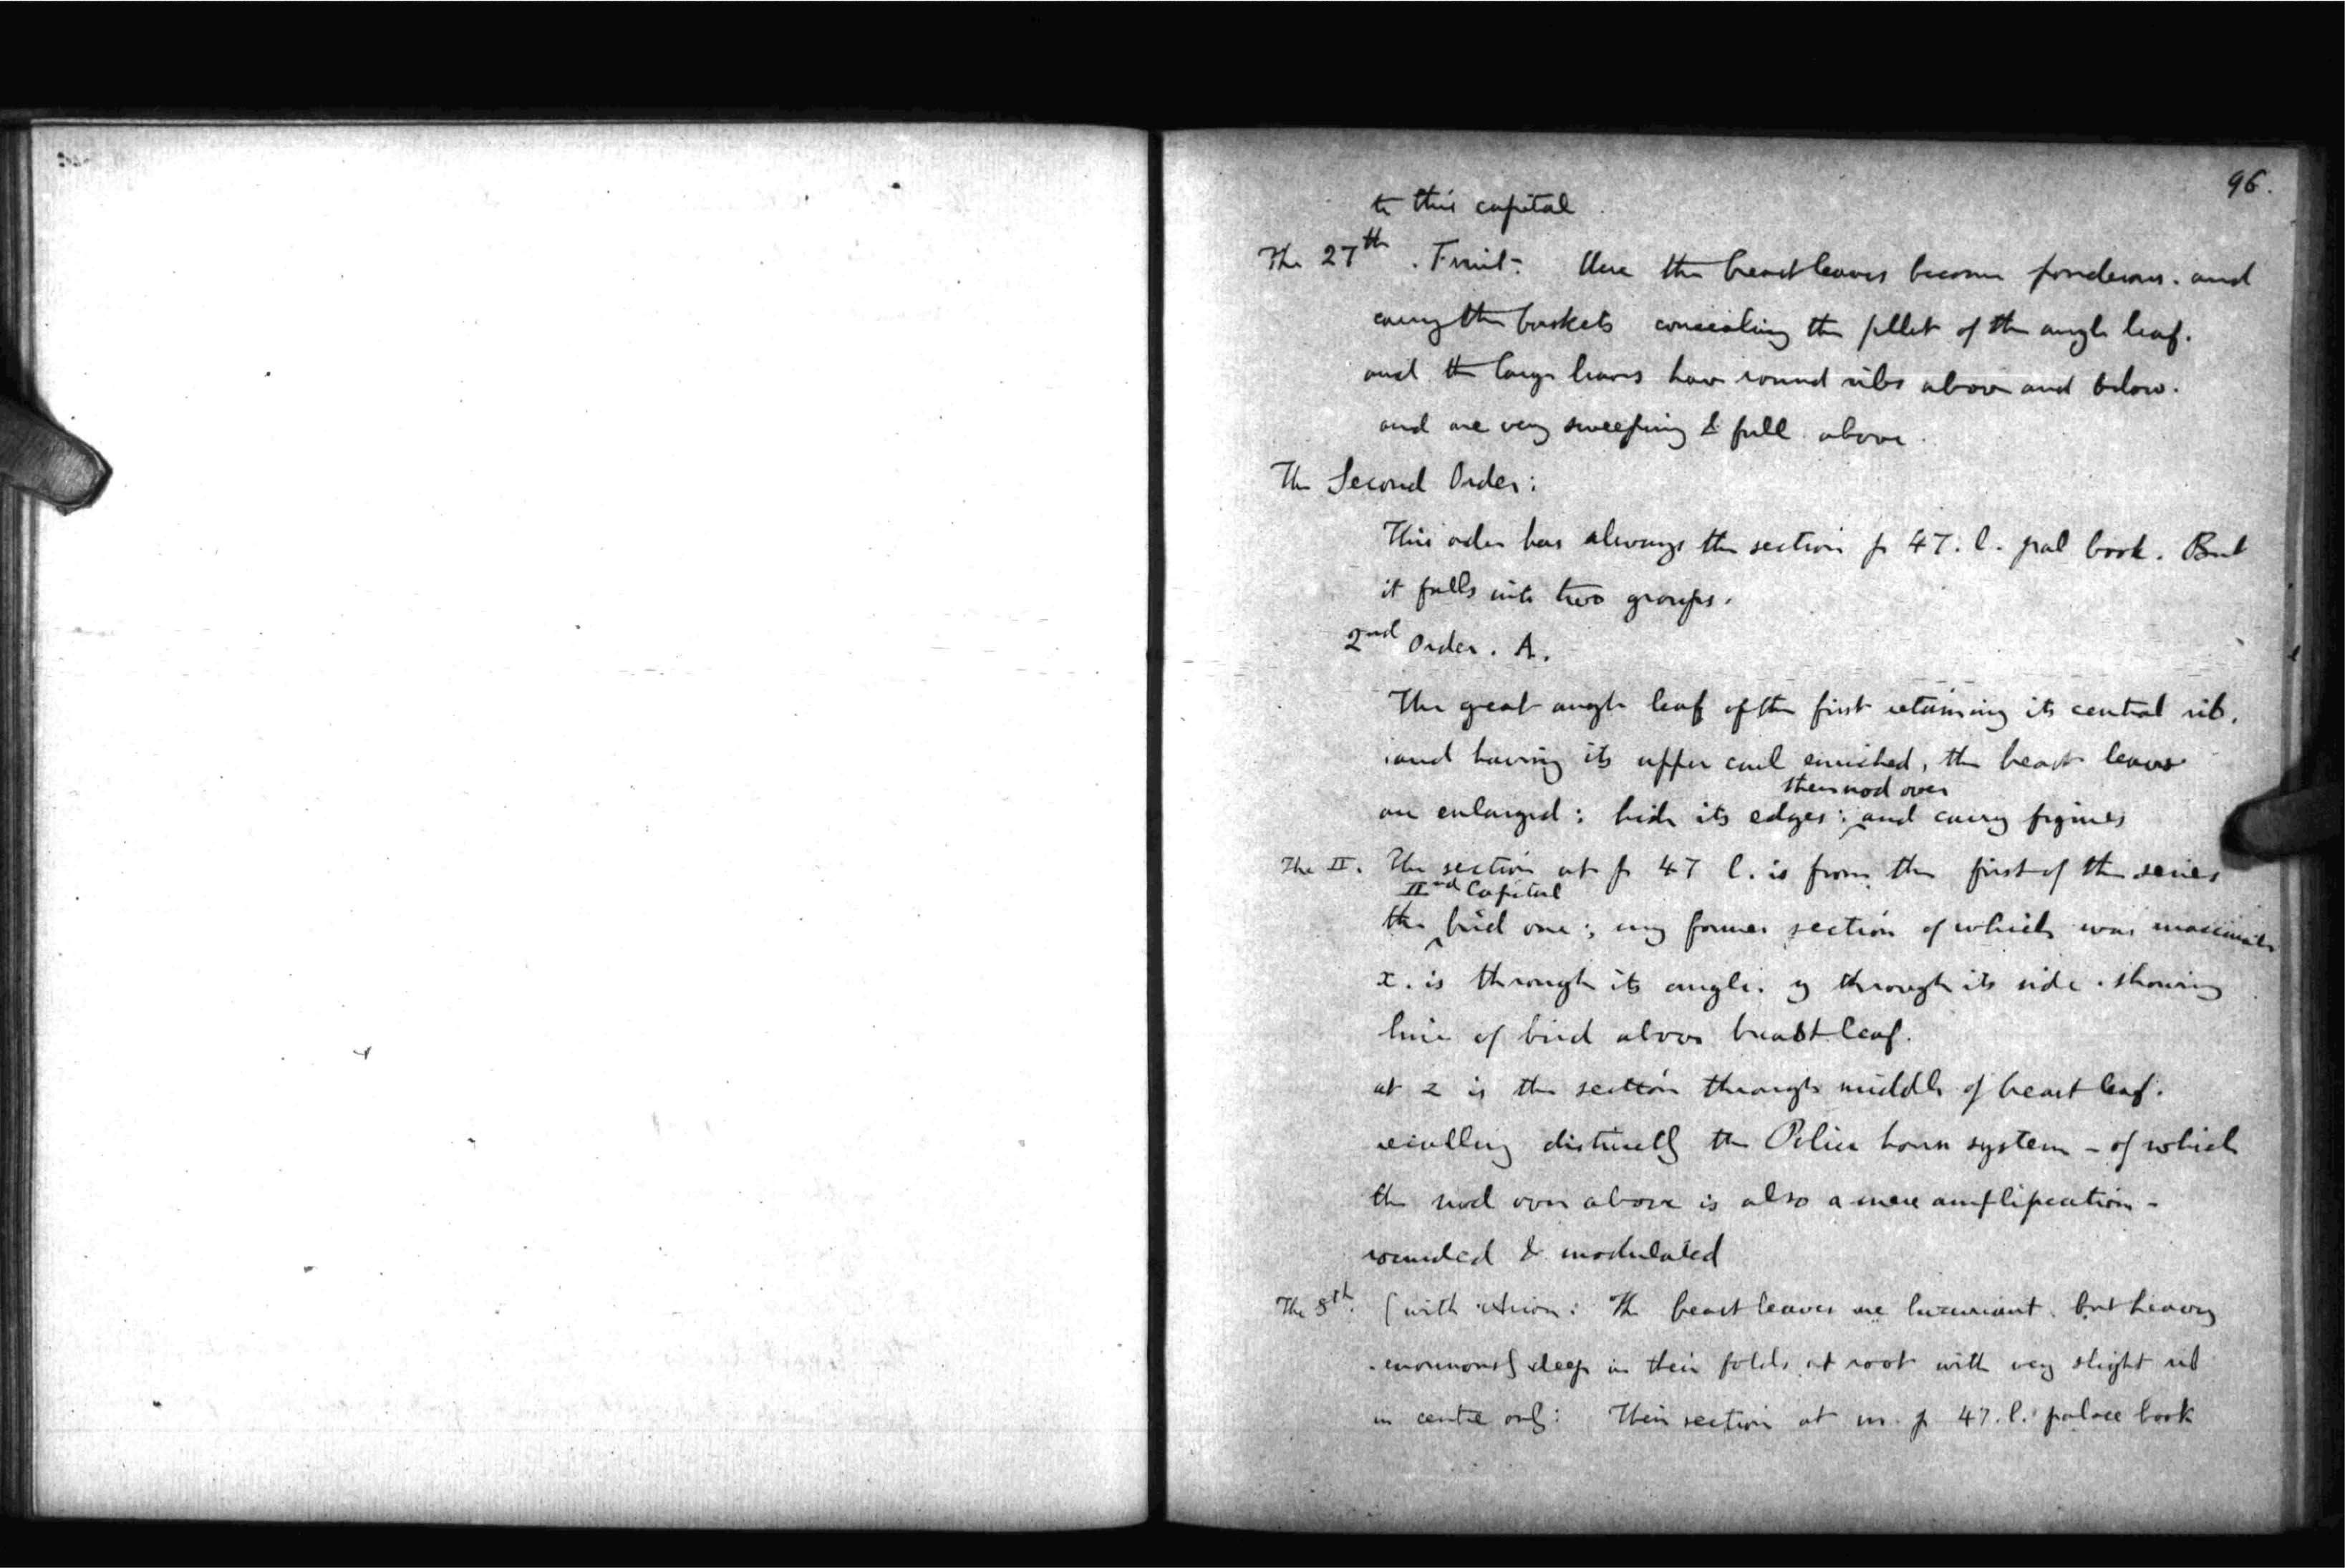 96.
to this capital
The 27th. Fruit: Here the breast leaves become ponderous. and
carry the baskets concealing the fillet of the angle leaf.
and the large leaves have round ribs above and below.
and are very sweeping & full above.
The Second Order:
This order has always the section p 47. l. pal book. But
it falls into two groups.
2nd Order. A.
The great angle leaf of the first retaining its central rib.
and having its upper curl enriched, the breast leaves
then nod over
are enlarged: hide its edges: and carry figures
The II. The section at p 47 l. is from the first of the series
IInd Capital
the bird one; my former section of which was inaccurate
x. is through its angle. y through its side. showing
line of bird above breast leaf.
at z is the section through middle of breast leaf.
recalling distinctly the Police house system - of which
the nod over above is also a mere amplification -
rounded & modulated
The 8th. (with Arion: The breast leaves are luxuriant. but heavy
enormously deep in their folds at root with very slight rib
in centre only: Their section at m. p 47. l. palace book